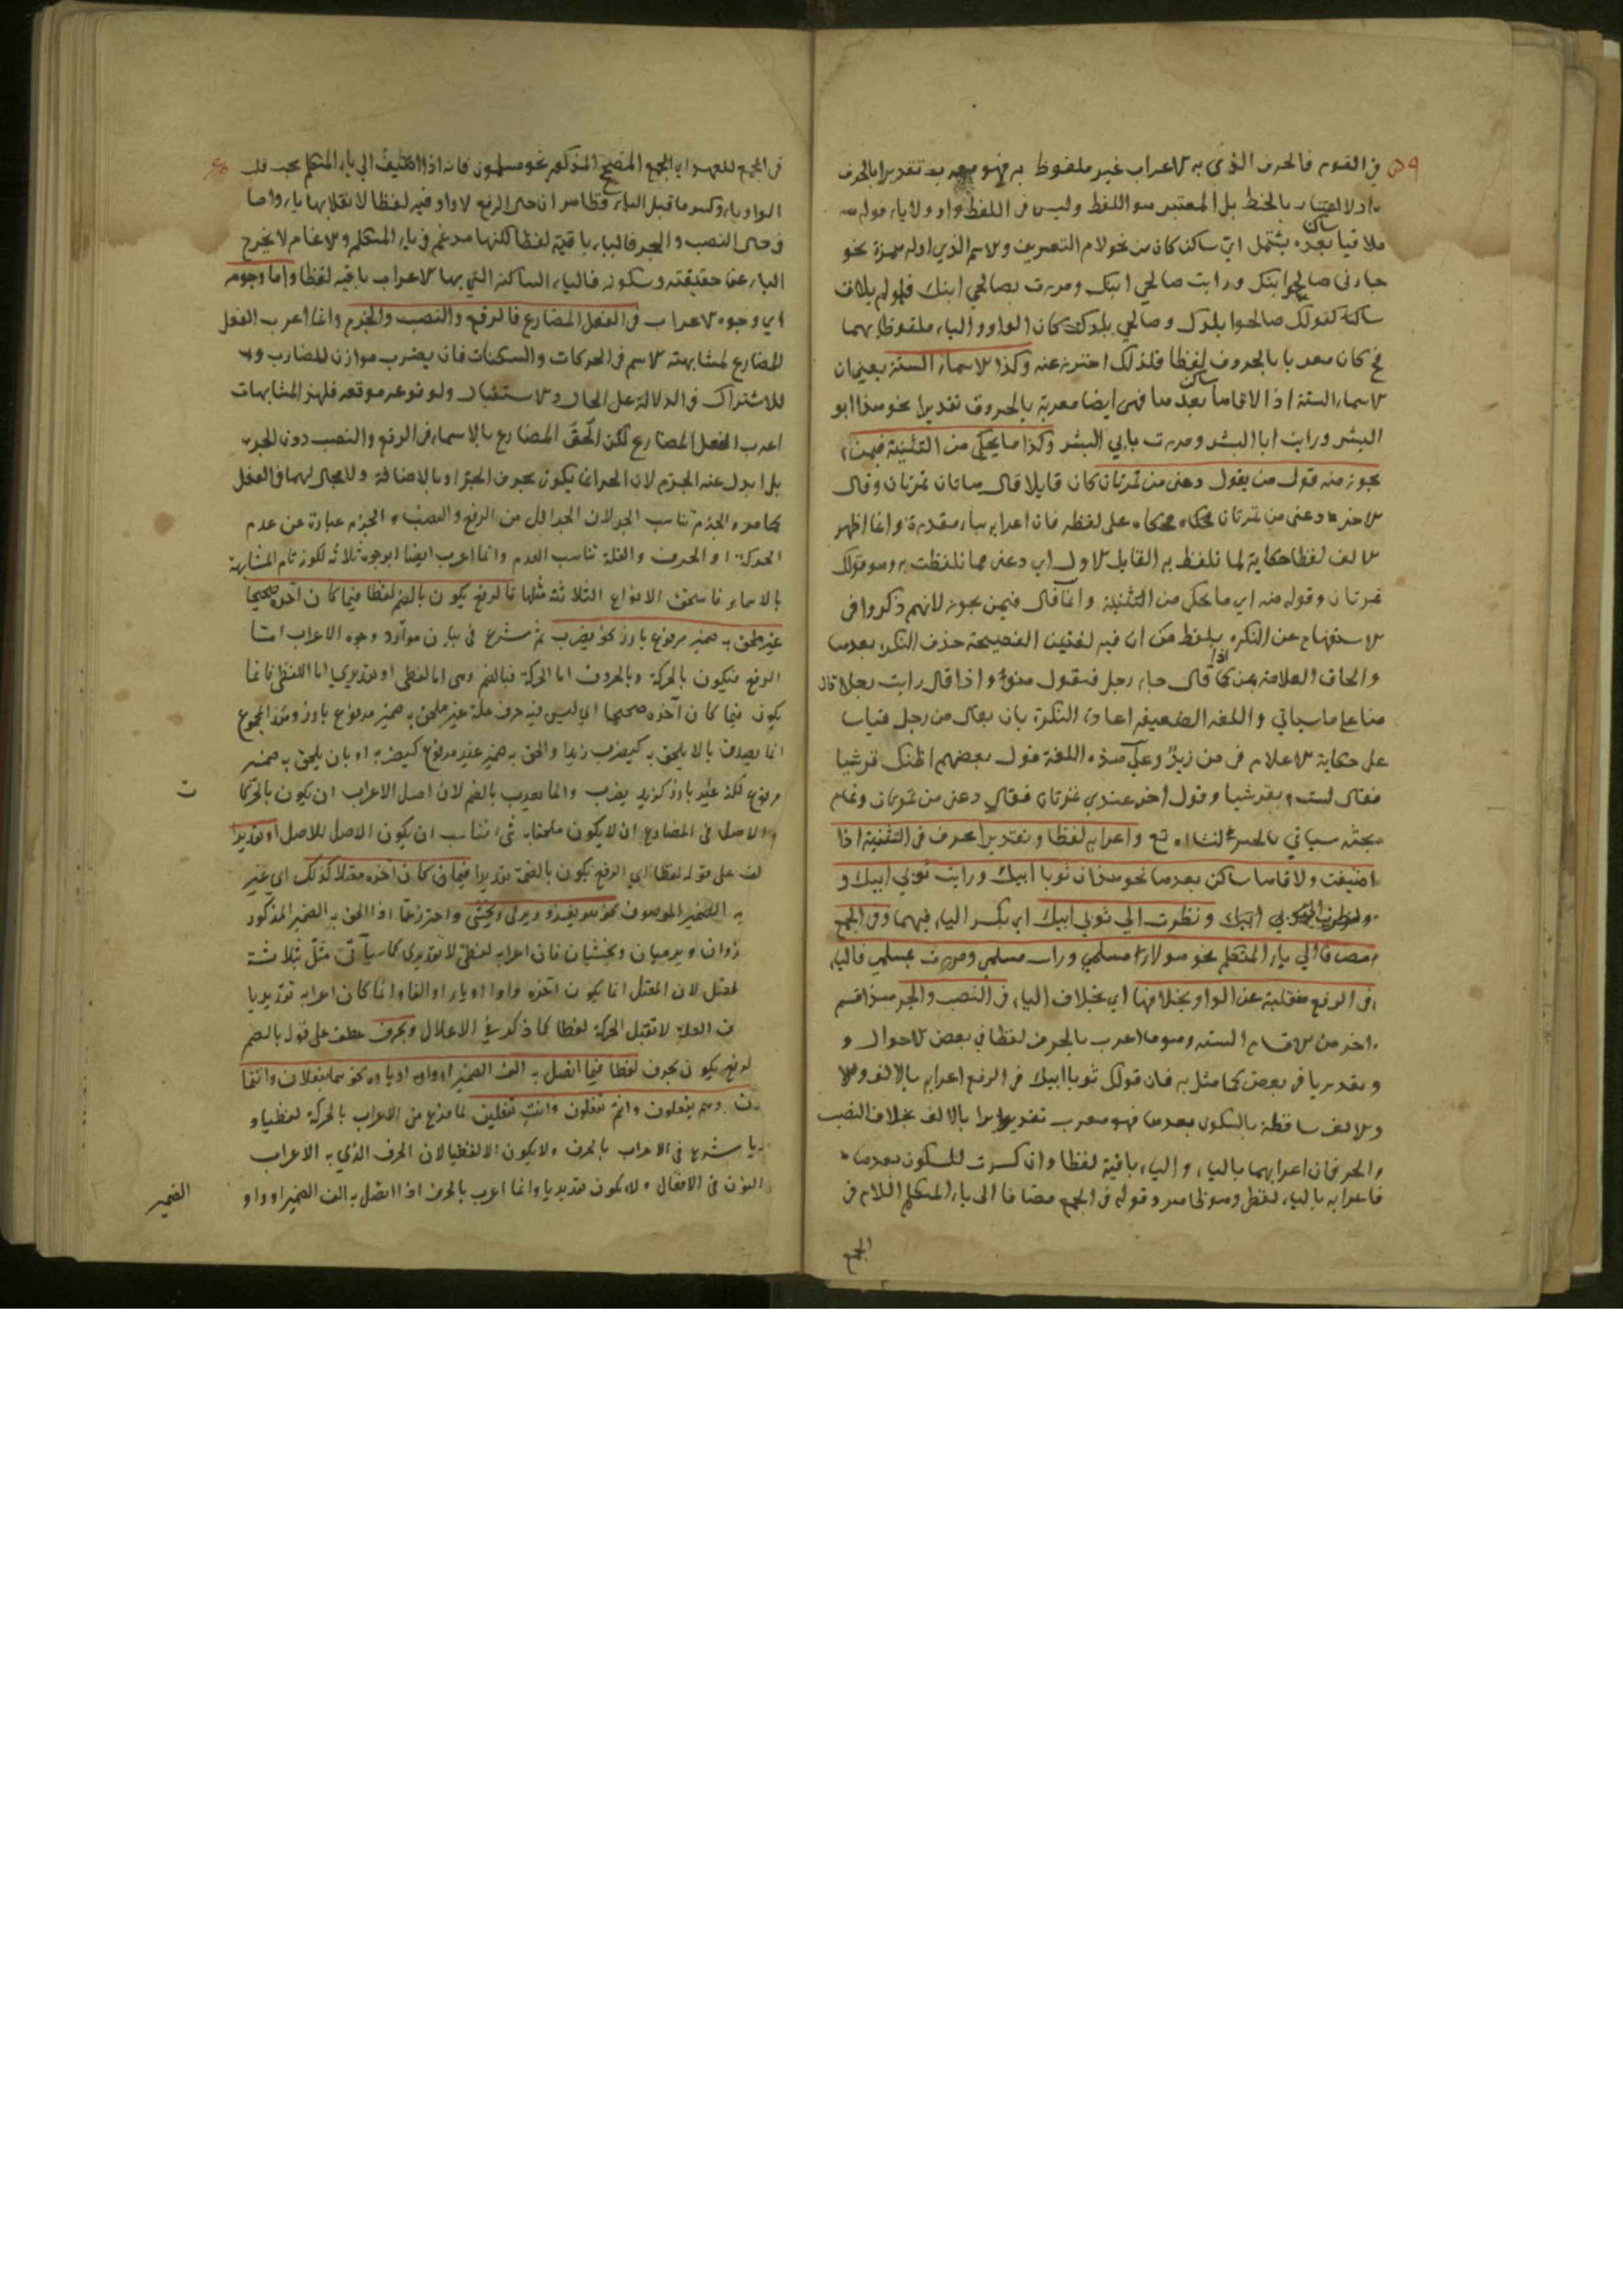 في القوم فالحرف الذي به الاعراب غير ملفوظ به فهو معرب تقديرا بالحرف
اذ لا اعتبار بالخط بل المعتبر هو اللفظ وليس في اللفظ واو ولا ياء قوله
ملاقيا ساكن بعده يشتمل اي ساكن كان من نحو لام التعريف والاسم الذي اوله همزة نحو
جاءني صالحوا ابنك ورايت صالحي ابنك ومررت بصالحي ابنك فلو لم يلاق
ساكنا كقولك صالحوا بلدك وصالحي بلدك كان الواو والياء ملفوظا بهما
فح كان معربا بالحروف لفظا فلذلك احترز عنه وكذا الاسماء الستة يعني ان
الاسماء الستة اذا لاقاها ساكن بعدها فهي ايضا معربة بالحروف تقديرا نحو هذا ابو
البشر ورايت ابا البشر ومررت بابي البشر وكذا ما يحكى من التثنية فيمن
يجوز منه قول من يقول دعني من تمرتان كان قايلا قال هاتان تمرتان وقال
الاخر دعني من تمرتان محكاه على لفظه فان اعرابه بياء مقدرة وانما اظهر
الالف لفظا حكاية لما تلفظ به القايل الاول اي دعني مما تلفظت به وهو قولك
تمرتان وقوله منه اي ما يحكى من التثنية وانما قال فيمن يجوز لانهم ذكروا في
الاستفهام عن النكرة بلفظ من ان فيه لغتين الفصيحة حذف النكرة بعدها
والحاق العلامة بمن كما اذا قال جاء رجل فتقول منو واذا قال رايت رجلا قال
منا على ما سياتي واللغة الضعيفة اعادة النكرة بان يقال من رجل قياسا
على حكاية الاعلام في من زيد وعلى هذه اللغة قول بعضهم اظنك قرشيا
فقال لست بقرشيا وقول اخر عندي تمرتان فقال دعني من تمرتان وتمام
بحثه سياتي ان شاء الله تع واعرابه لفظا وتقديرا بحرف في التثنية اذا
اضيفت ولاقاها ساكن بعدها نحو هذان ثوبا ابيك ورايت ثوبي ابيك و
ابيك ونظرت الى ثوبي ابيك اي بكسر الياء فيهما وفي الجمع
مضافا الي ياء المتكلم نحو هولاء مسلمي ورايت مسلمي ومررت بمسلمي فالياء
في الرفع منقلبة عن الواو بخلافها اي بخلاف الياء في النصب والجر هذا قسم
اخر من الاقسام الستة وهو ما اعرب بالحرف لفظا في بعض الاحوال و
وتقديريا في بعض كما مثل به فان قولك ثوبا ابيك في الرفع اعرابه بالالف
والالف ساقطة بالسكون بعدها فهو معرب تقديرا بالالف بخلاف النصب
والجر فان اعرابهما بالياء والياء باقية لفظا وان كسرت للسكون بعدها
فاعرابه بالياء لفظي وهو ظاهر وقوله في الجمع مضافا الى ياء المتكلم اللام في
الجمع
في الجمع للعهد اي الجمع المصحح المذكور نحو مسلمون فانه اذا اضيف الي ياء المتكلم يجب قلب
الواو ياء وكسر ما قبل الياء فظاهر ان حال الرفع لا واو فيه لفظا لانقلابها ياء واما
في حال النصب والجر فالياء باقية لفظا لكنها مدغم في ياء المتكلم والادغام لا يخرج
الياء عن حقيقته وسكونه فالياء الساكنة التي بها الاعراب باقية لفظا واما وجوه
اي وجوه الاعراب في الفعل المضارع فالرفع والنصب والجزم وانما اعرب الفعل
المضارع لمشابهته الاسم في الحركات والسكنات فان يضرب موازن لضارب
للاشتراك في الدلالة على الحال والاستقبال ولوقوعه موقعه فلهذه المشابهات
اعرب الفعل المضارع لكن الحق المضارع بالاسماء في الرفع والنصب دون الجر
بل ابدل عنه الجزم لان الجر انما يكون بحرف الجر او بالاضافة ولا مجال لهما في الفعل
كما مر والجزم تناسب الجر لان الجر اقل من الرفع والنصب والجزم عبارة عن عدم
الحركة او الحرف والقلة تناسب العدم وانما اعرب ايضا بوجوه ثلاثة لكونه تام المشابهة
بالاسماء فاستحق الانواع الثلاثة مثلها فالرفع يكون بالضم لفظا فيما كان آخره صحيحا
غير ملحق به ضمير مرفوع بارز نحو يضرب ثم شرع في بيان موارد وجوه الاعراب اما
الرفع فيكون بالحركة وبالحروف اما الحركة فبالضم وهي اما لفظي او تقديري اما اللفظي فانما
يكون فيما كان آخره صحيحا اي ليس فيه حرف علة غير ملحق به ضمير مرفوع بارز وهذا المجموع
انما يصدق بالا يلحق به كيضرب زيد او الحق به ضمير غير مرفوع كيضربه او بان يلحق به ضمير
مرفوع لكنه غير بارز كزيد يضرب وانما يعرب بالضم لان اصل الاعراب ان يكون بالحركة
والاصل في المضارع ان لا يكون ملحقا به شيء فناسب ان يكون الاصل للاصل او تقديرا
عطف على قوله لفظا اي الرفع يكون بالضمة تقديرا فيما كان آخره معتلا كذلك اي غير
به الضمير الموصوف نحو هو يغزو ويرمى ويخشى واحترز عما اذا الحق به الضمير المذكور
يغزوان ويرميان ويخشيان فان اعرابه لفظي لا تقديري كما سيأتي مثل بثلاثة
لمعتل لان المعتل انما يكون آخره واوا او ياء او الفا وانما كان اعرابه تقديريا
حرف العلة لا تقبل الحركة لفظا كما ذكر في الاعلال وبحرف عطف على قوله بالضم
لرفع يكون بحرف لفظا فيما اتصل به الف الضمير او واوه او ياوه نحو هما يفعلان وانتما
وهم يفعلون وانتم تفعلون وانت تفعلين لما فرغ من الاعراب بالحركة لفظيا و
تقديريا شرع في الاعراب بالحرف ولا يكون الا لفظيا لان الحرف الذي به الاعراب
النون في الافعال ولا يكون تقديريا وانما اعرب بالحرف اذا اتصل به الف الضمير او واو
الضمير